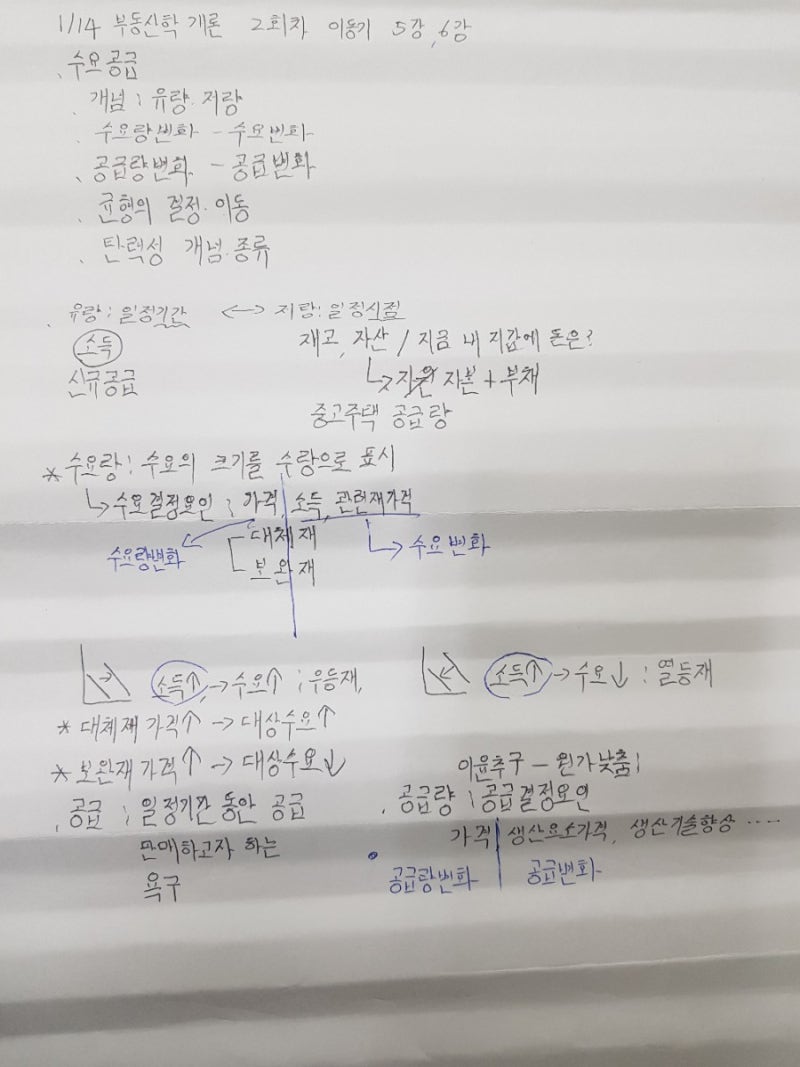 1/14 부동산학 개론 2회차 이동기 5강, 6강
、수요공급
、개념 : 유량·저량
、수요량변화 - 수요변화
、공급량변화 - 공급변화
、균형의 결정·이동
、탄력성 개념·종류
、유량 : 일정기간 ↔ 저량 : 일정시점
소득 재고, 자산 / 지금 내 지갑에 돈은?
신규공급 ↳ 자본 + 부채
중고주택 공급량
* 수요량 : 수요의 크기를 수량으로 표시
↳ 수요결정요인 : 가격, 소득, 관련재가격
수요량변화 대체재 ↳ 수요변화
보완재
소득↑ → 수요↑ : 우등재, 소득↑ → 수요↓ : 열등재
* 대체재 가격↑ → 대상수요↑
* 보완재 가격↑ → 대상수요↓ 이윤추구 - 원가낮춤;
、공급 : 일정기간 동안 공급 、공급량 : 공급결정요인
판매하고자 하는 가격 생산요소가격, 생산기술향상 ....
욕구 공급량변화 공급변화